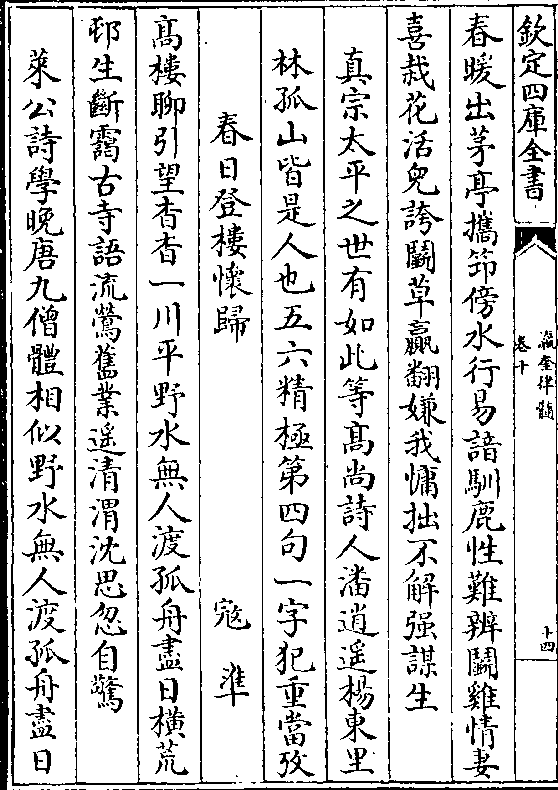 欽定四庫全書
瀛奎律髓
卷十
十四
春暖出茅亭攜笻傍水行易諳馴鹿性難辨鬬雞情妻
喜栽花活兒誇鬬草贏翻嫌我慵拙不解强謀生
真宗太平之世有如此等髙尚詩人潘逍遥楊東里
林孤山皆是人也五六精極第四句一字犯重當攷
春日登樓懷歸　寇準
髙樓聊引望杳杳一川平野水無人渡孤舟盡日横荒
邨生斷靄古寺語流鶯舊業遥清渭沈思忽自驚
萊公詩學晚唐九僧體相似野水無人渡孤舟盡日